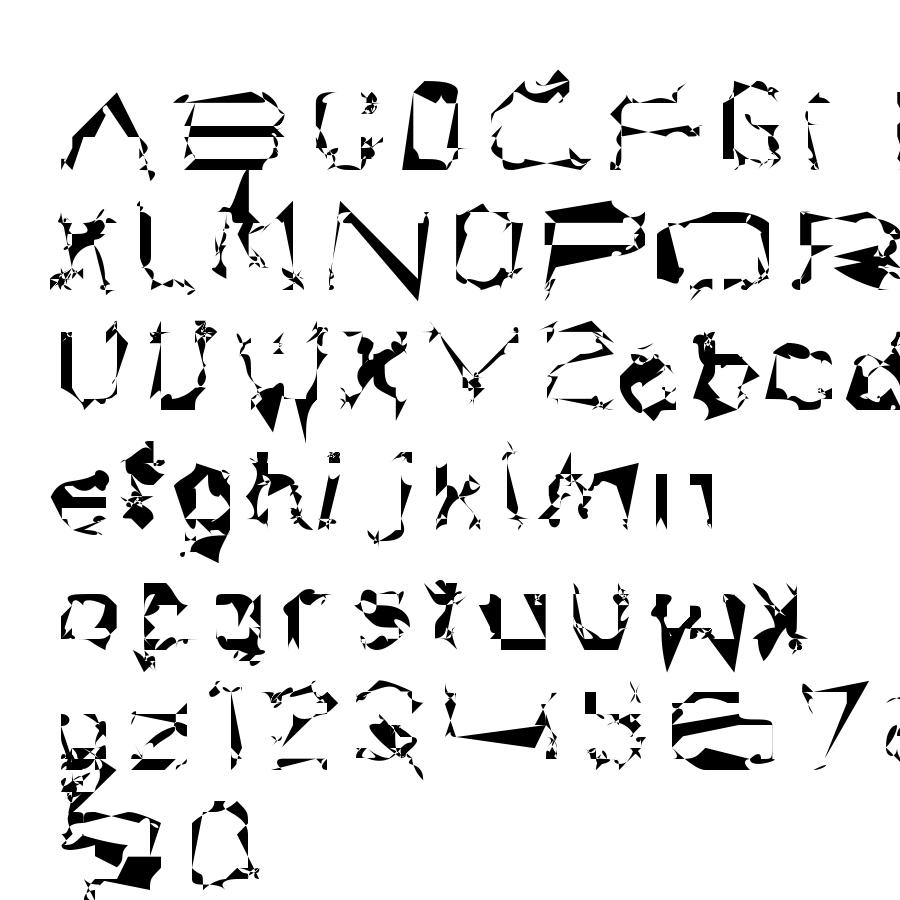 ABCDEFG
KLMNOPQR
UVWXYZabcd
efghijklmn
opqrstuvwx
yz1234567
90